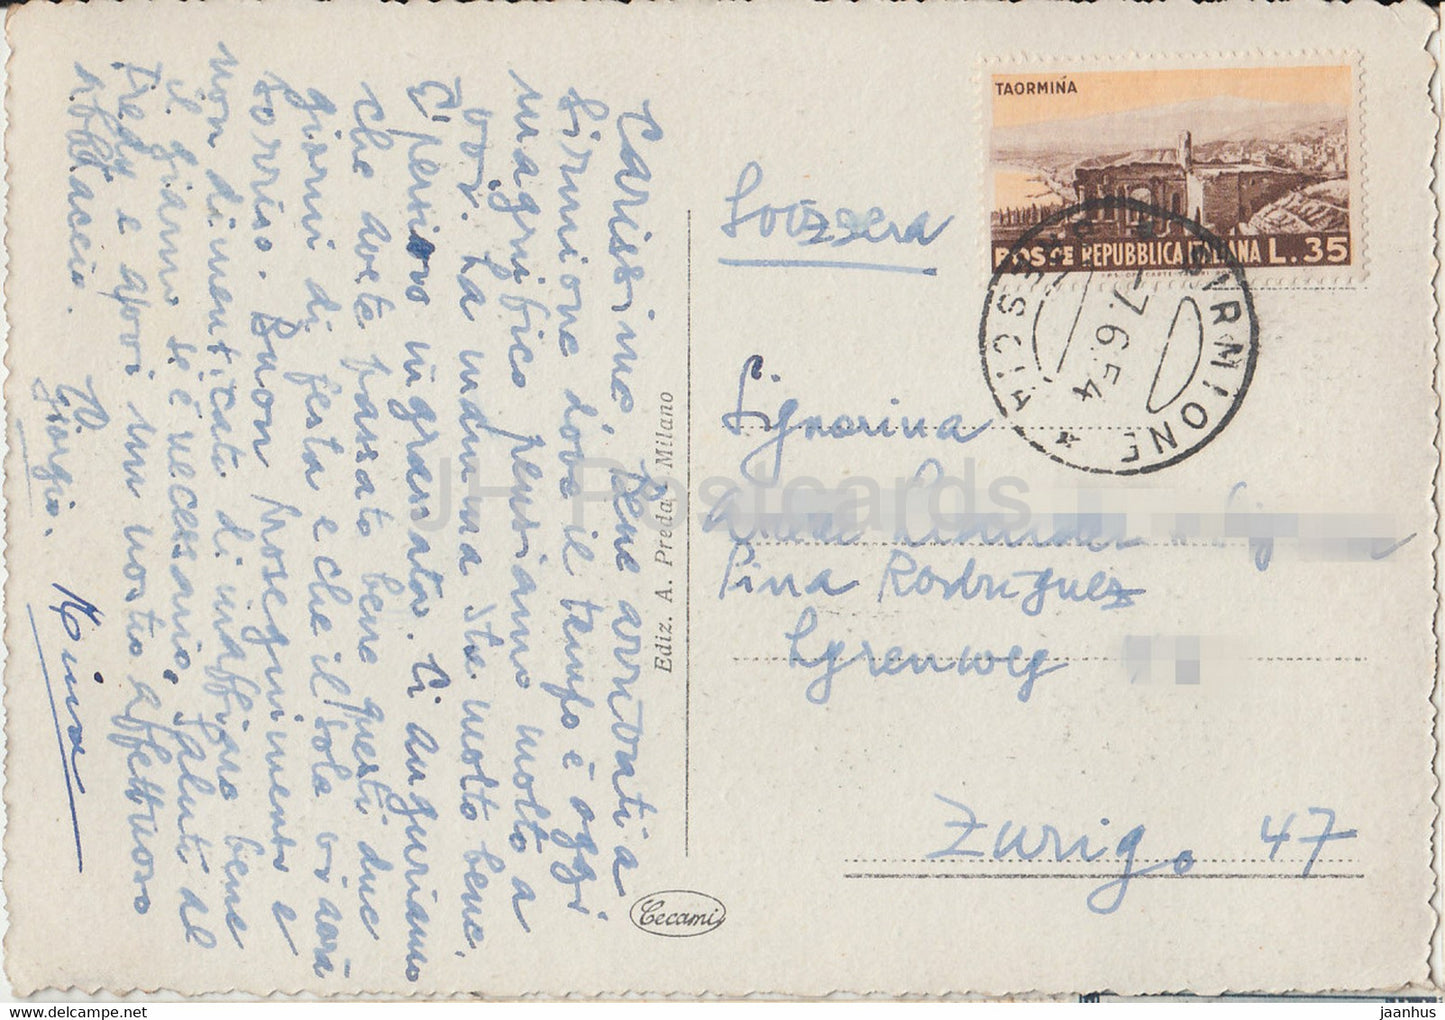 Carissime, bene arrivati a
Sirmione dove il tempo è oggi
magnifico pensiamo molto a
voi. La mamma sta molto bene,
Ci auguriamo
che avete passato bene questi due
giorni di festa e che il sole vi avrà
sorriso. Buon proseguimento e
non dimenticate di innaffiare bene
il giar se è necessario. Saluti al
e a voi un nostro affettuoso
abbraccio.
Giorgio.
Mima
Ediz. A. Preda, Milano
Cecami
TAORMINA
POSTE REPUBBLICA ITALIANA L.35
SIRMIONE
-7.6.54
BRESCIA
Svizzera
Signorina
Pina Rodriguez
Lyrenweg
Zurigo 47
JH Postcards
www.delcampe.net
jaanhus